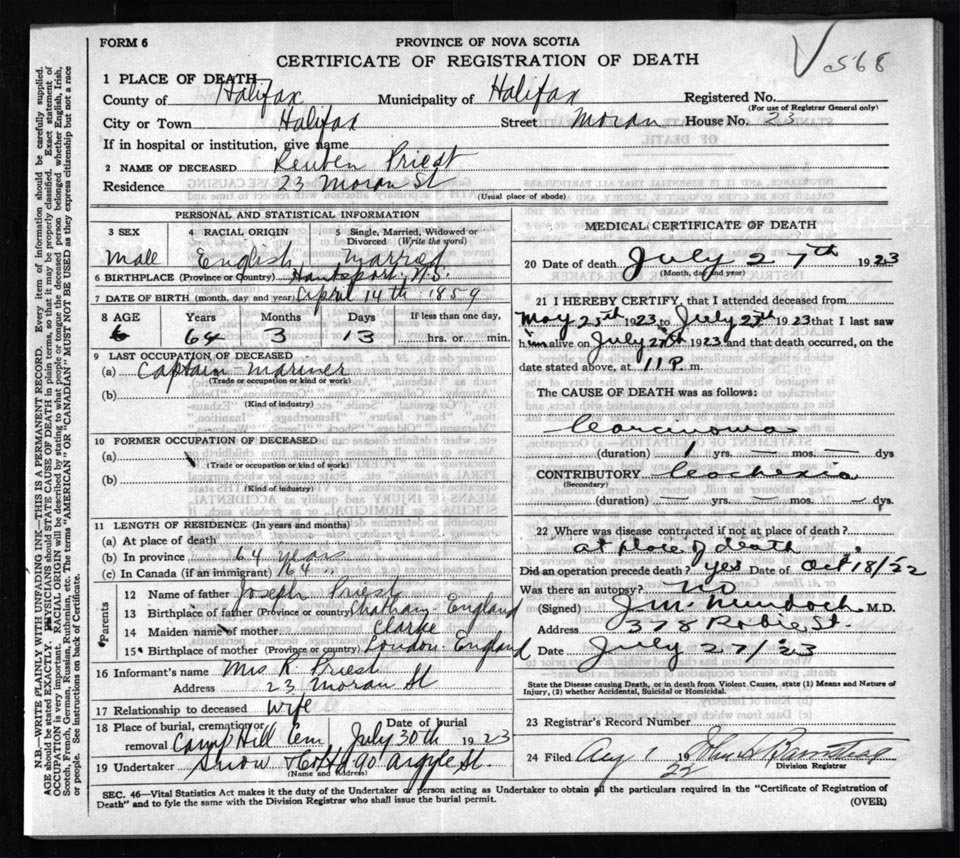 568
FORM 6
PROVINCE OF NOVA SCOTIA
CERTIFICATE OF REGISTRATION OF DEATH
1 PLACE OF DEATH
County of Halifax Municipality of Halifax Registered No.
(For use of Registrar General only)
City or Town Halifax Street Moran House No. 23
If in hospital or institution, give name
2 NAME OF DECEASED Reuben Priest
Residence 23 Moran St
(Usual place of abode)
PERSONAL AND STATISTICAL INFORMATION
3 SEX Male
4 RACIAL ORIGIN English
5 Single, Married, Widowed or Divorced (Write the word) Married
6 BIRTHPLACE (Province or Country) Hantsport N.S.
7 DATE OF BIRTH (month, day and year) April 14th 1859
8 AGE Years Months Days If less than one day,
64 3 13 hrs. or min.
9 LAST OCCUPATION OF DECEASED
(a) Captain Mariner
(Trade or occupation or kind or work)
(b)
(Kind of industry)
10 FORMER OCCUPATION OF DECEASED
(a)
(Trade or occupation or kind or work)
(b)
(Kind of industry)
11 LENGTH OF RESIDENCE (In years and months)
(a) At place of death
(b) In province 64 years
(c) In Canada (if an immigrant) 64 "
Parents
12 Name of father Joseph Priest
13 Birthplace of father (Province or country) Chatham England
14 Maiden name of mother Clarke
15 Birthplace of mother (Province or country) London England
16 Informant's name Mrs R. Priest
Address 23 Moran St
17 Relationship to deceased Wife
18 Place of burial, cremation or removal Camp Hill Cem Date of burial July 30th 1923
19 Undertaker Snow & Co Ltd 90 Argyle St.
(Name and Address)
MEDICAL CERTIFICATE OF DEATH
20 Date of death July 27th 1923
(Month, day and year)
21 I HEREBY CERTIFY, that I attended deceased from
May 25th 1923 to July 27th 1923 that I last saw
him alive on July 27th 1923 and that death occurred, on the
date stated above, at 11 P. m.
The CAUSE OF DEATH was as follows:
Carcinoma
(duration) 1 yrs. — mos. — dys
CONTRIBUTORY Cachexia
(Secondary)
(duration) — yrs. — mos. — dys.
22 Where was disease contracted if not at place of death?
at place of death
Did an operation precede death? yes Date of Oct 18/22
Was there an autopsy? No
(Signed) J. M. Murdoch M.D.
Address 378 Robie St.
Date July 27/23
State the Disease causing Death, or in death from Violent Causes, state (1) Means and Nature of
Injury, (2) whether Accidental, Suicidal or Homicidal.
23 Registrar's Record Number
24 Filed Aug 1 19 22
Division Registrar
SEC. 46—Vital Statistics Act makes it the duty of the Undertaker or person acting as Undertaker to obtain all the particulars required in the "Certificate of Registration of
Death" and to fyle the same with the Division Registrar who shall issue the burial permit.
(OVER)
N.B.—WRITE PLAINLY WITH UNFADING INK—THIS IS A PERMANENT RECORD. Every item of information should be carefully supplied.
AGE should be stated EXACTLY. PHYSICIANS should STATE CAUSE OF DEATH in plain terms, so that it may be properly classified. Exact statement of
OCCUPATION is very important. RACIAL ORIGIN will be described by stating to what people or tongue the deceased person belonged whether English, Irish,
Scotch, French, German, Russian, Ruthenian, etc. The terms "AMERICAN" OR "CANADIAN" MUST NOT BE USED as they express citizenship but not a race
or people. See instructions on back of Certificate.